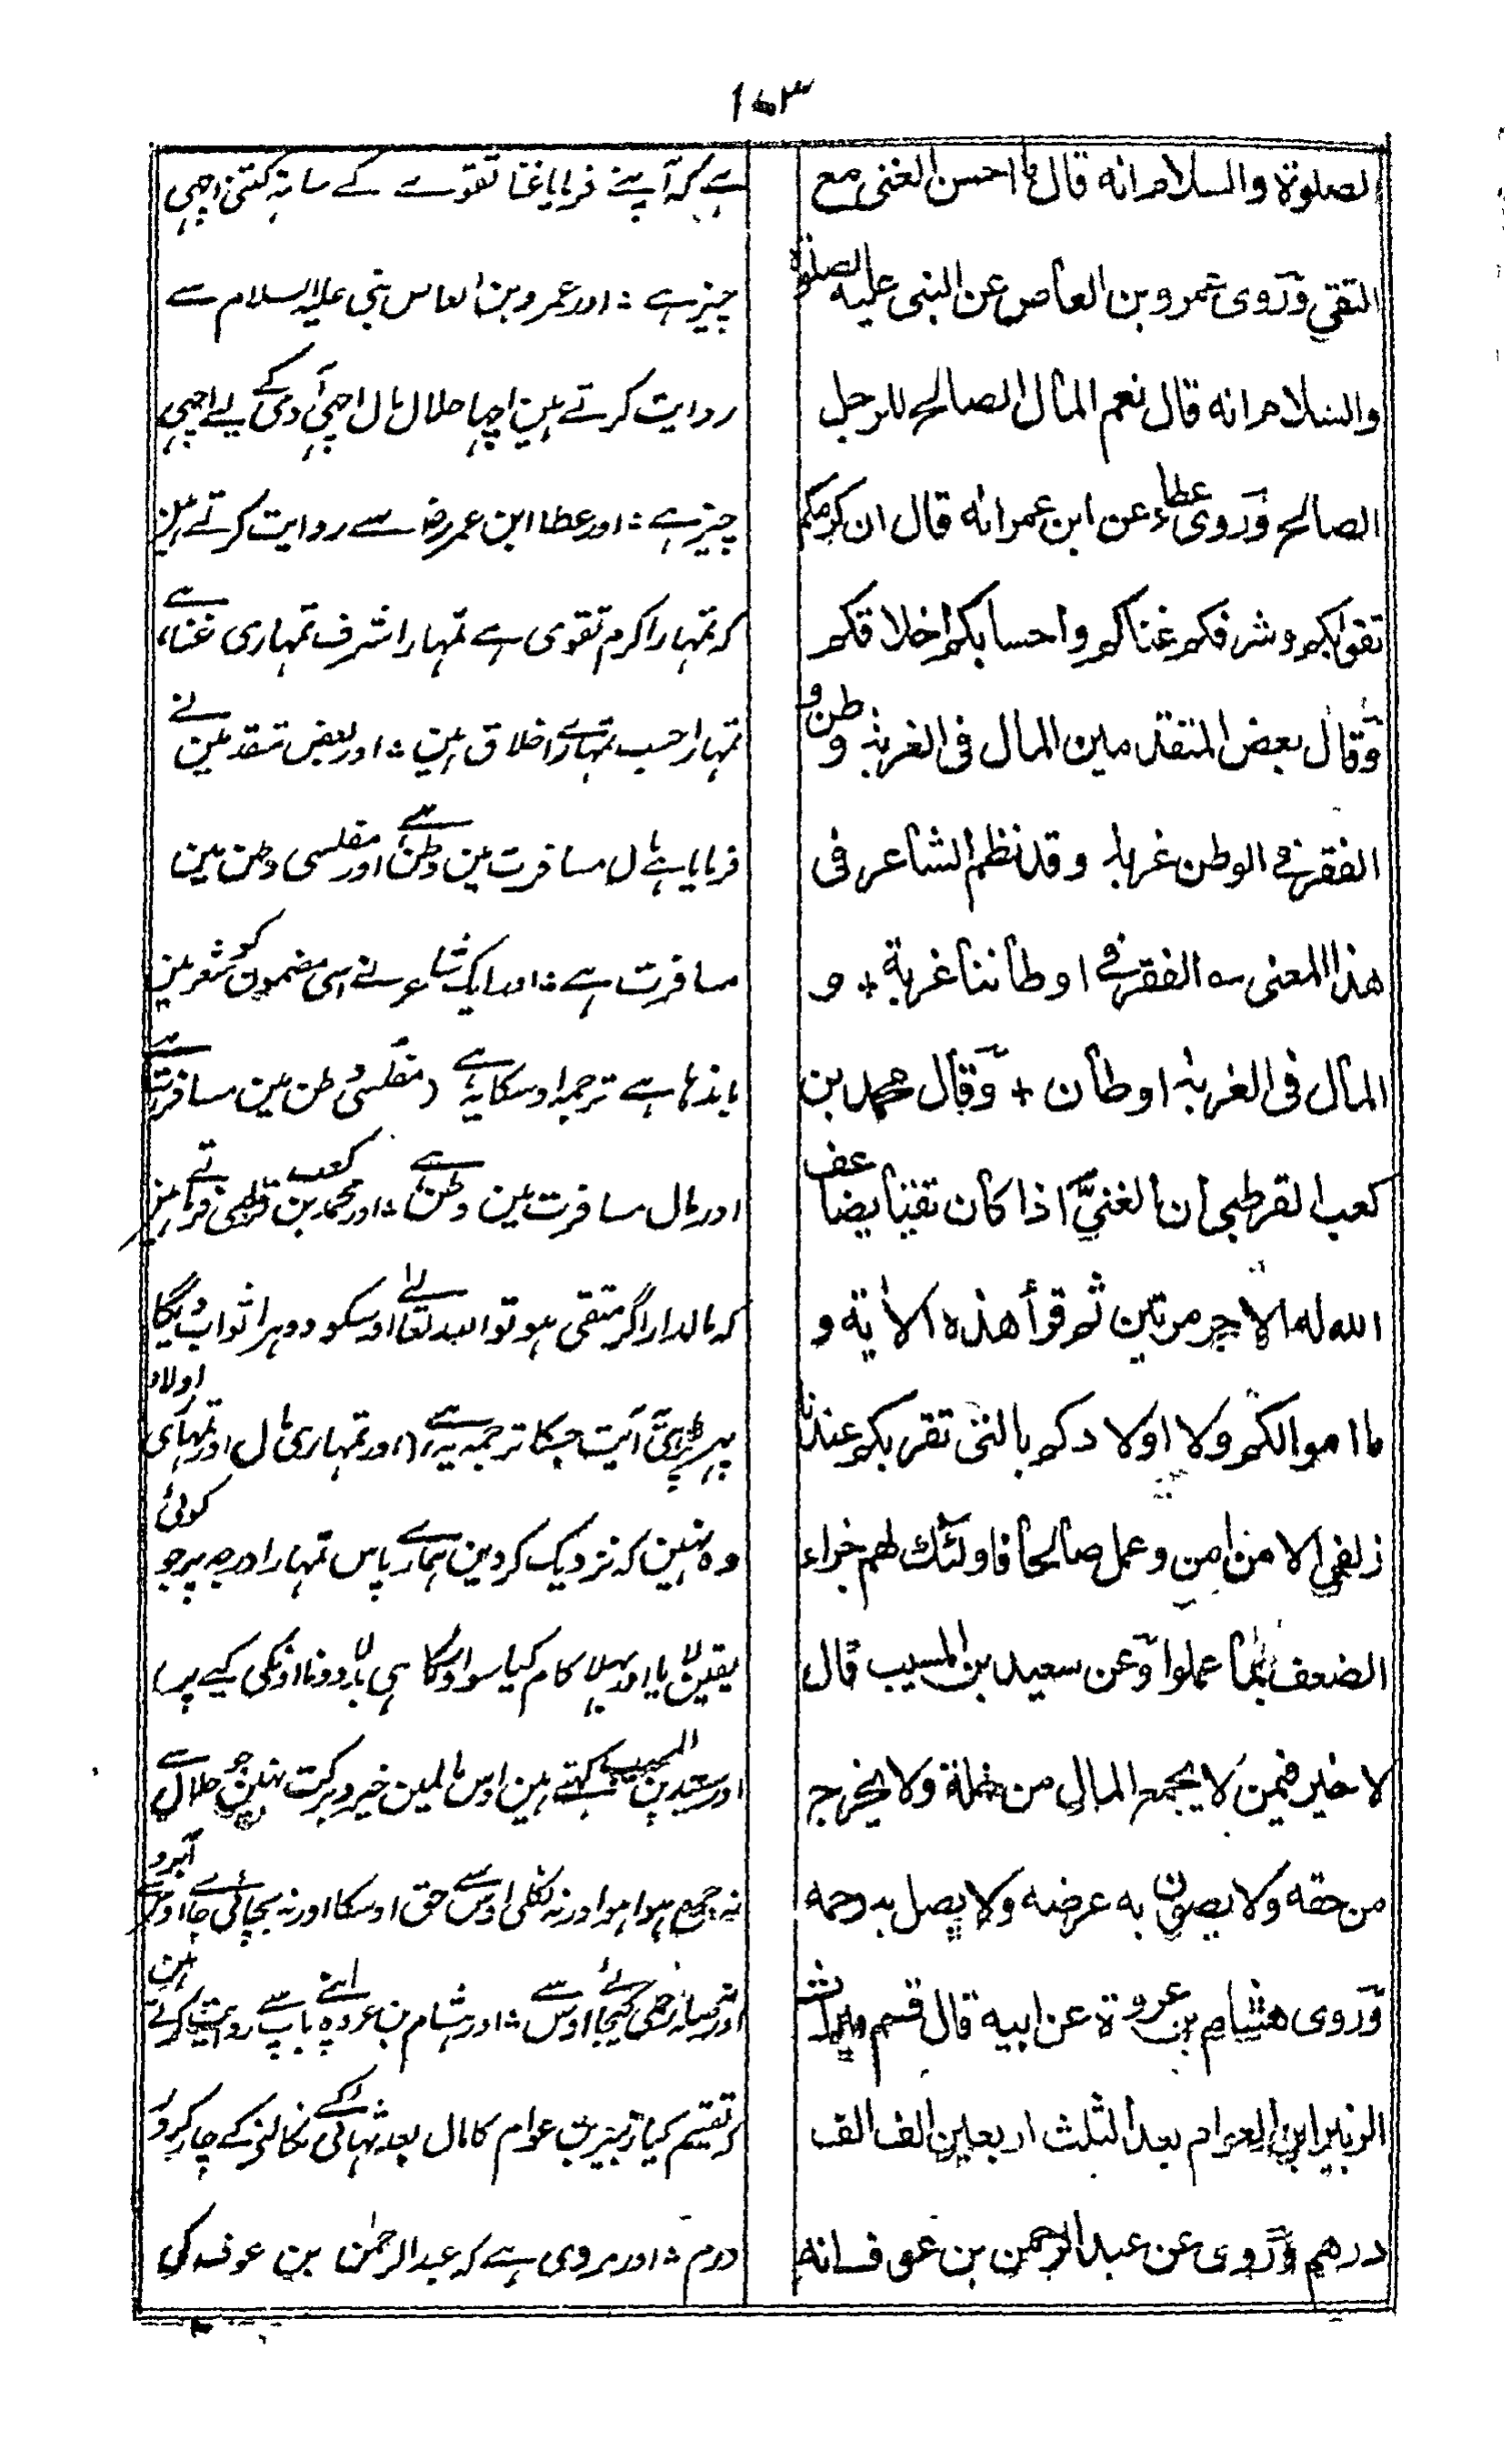 ۱۵۳
الصلوة والسلام انه قال ما احسن الغنى مع
التقي وروى عمرو بن العاص عن النبى عليه الصلوة
والسلام انه قال نعم المال الصالح للرجل
الصالح وروى عطاء عن ابن عمر انه قال ان كرمكم
تقواكم وشرفكم غناكم واحسابكم اخلاقكم
وقال بعض المتقدمين المال فى الغربة وطن و
الفقر في الوطن غربة وقد نظم الشاعر فى
هذا المعنى ـه الفقر في اوطاننا غربة + و
المال فى الغربة اوطان + وقال محمد بن
كعب القرظى ان الغنيّ اذا كان تقيا يضاعف
الله له الاجر مرتين ثم قرأ هذه الاية و
ما اموالكم ولا اولادكم بالتى تقربكم عندنا
زلفى الا من امن وعمل صالحا فاولئك لهم جزاء
الضعف بما عملوا وعن سعيد بن المسيب قال
لا خير فيمن لا يجمع المال من حله ولا يخرج
من حقه ولا يصون به عرضه ولا يصل به رحمه
وروى هشام بن عروة عن ابيه قال قسم ميراث
الزبير ابن العوام بعد الثلث اربعين الف الف
درهم وروى عن عبد الرحمن بن عوف انه
ہے کہ آپنے فرمایا غنا تقوے کے ساتہ کتنی اچہی
چیز ہے : اور عمرو بن العاص نبی علیہ السلام سے
روایت کرتے ہین اچہا حلال مال اچہے آدمی کے لیے اچہی
چیز ہے : اور عطا ابن عمر رضہ سے روایت کرتے ہین
کہ تمہارا کرم تقوی ہے تمہارا شرف تمہاری غنا ہے،
تمہارا حسب تمہارے اخلاق ہین : اور بعض متقدمین نے
فرمایا ہے مال مسافرت مین وطن ہے اور مفلسی وطن مین
مسافرت ہے : اور ایک شاعر نے اسی مضمون کو شعر مین
باندہا ہے ترجمہ اوسکا یہ ہے (مفلسی وطن مین مسافرت ہے
اور مال مسافرت مین وطن ہے : اور محمد بن کعب قرظی فرماتے ہین
کہ مالدار اگر متقی ہو تو اللہ تعالے اوسکو دوہرا ثواب دیگا
پہر پڑہی آیت جسکا ترجمہ یہ ہے، (اور تمہاری مال اور تمہاری اولاد
وہ نہین کہ نزدیک کردین ہمارے پاس تمہارا درجہ پر جو کوئی
یقین لایا اور بہلا کام کیا سو اونکا ہی بدلا دونا اونکی کیے پر)
اور سعید بن المسیب کہتے ہین اوس مال مین خیر و برکت نہین جو حلال سے
نہ جمع ہوا ہو اور نہ نکلی اوس سے حق اوسکا اور نہ بچائی جائے اوس سے آبرو
اور نہ صلہ رحمی کیجائے اوس سے : اور ہشام بن عروہ اپنے باپ سے روایت کرتے ہین
کہ تقسیم کیا زبیر بن عوام کا مال بعد تہائی نکالنے کے چار کروڑ
درم : اور مروی ہے کہ عبد الرحمٰن بن عوف کی